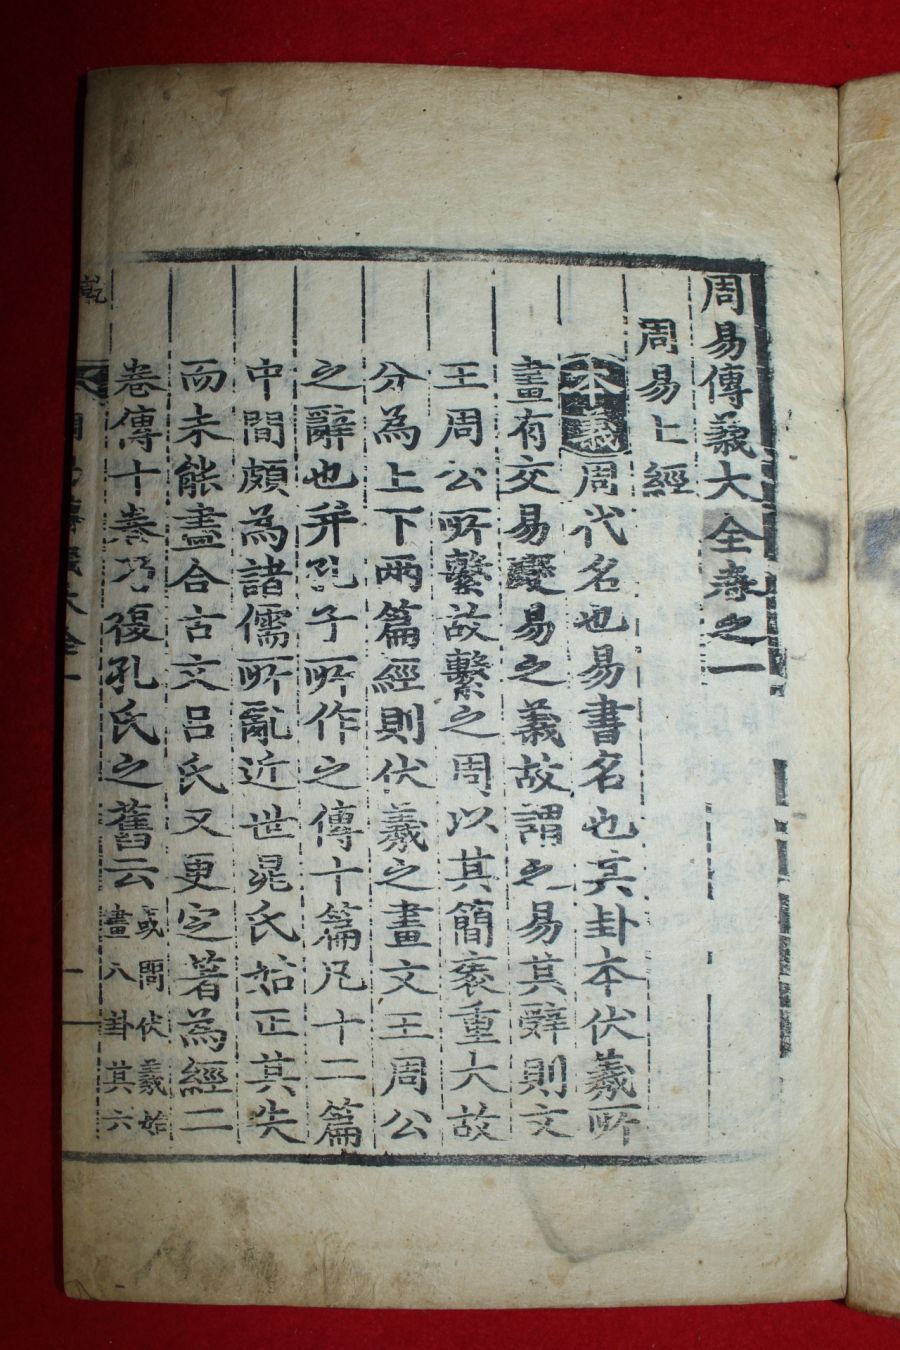 周易傳義大全卷之一
周易上經
本義周代名也易書名也其卦本伏羲所
畫有交易變易之義故謂之易其辭則文
王周公所繫故繫之周以其簡袠重大故
分為上下兩篇經則伏羲之畫文王周公
之辭也幷孔子所作之傳十篇凡十二篇
中間頗為諸儒所亂近世晁氏始正其失
而未能盡合古文呂氏又更定著為經二
卷傳十卷乃復孔氏之舊云
或問伏羲始
畫八卦其六
乾